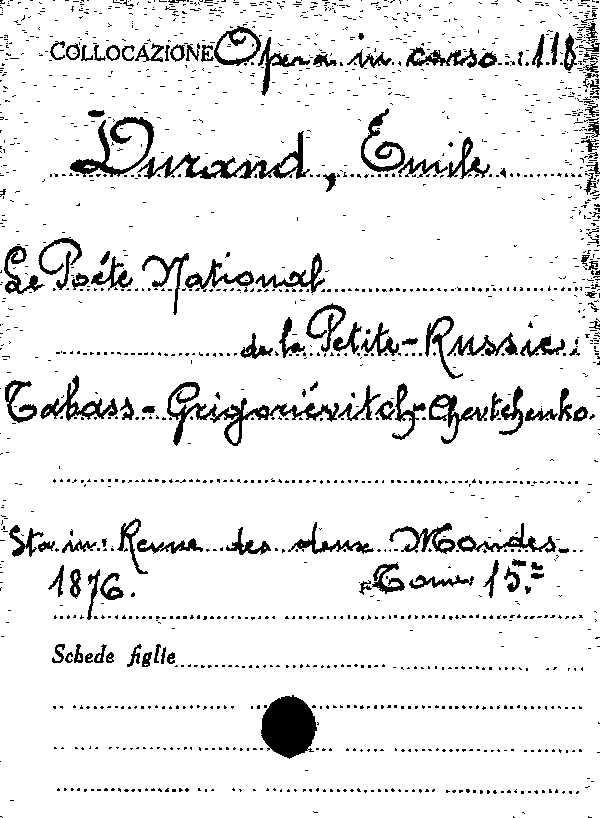 COLLOCAZIONE Opera in corso: 118
Durand, Emile.
Le Poéte National
de la Petite-Russie:
Tabass-Grigoriévitch Chevtchenko.
Sta in: Revue des deux Mondes
1876. Tome 15.=
Schede figlie